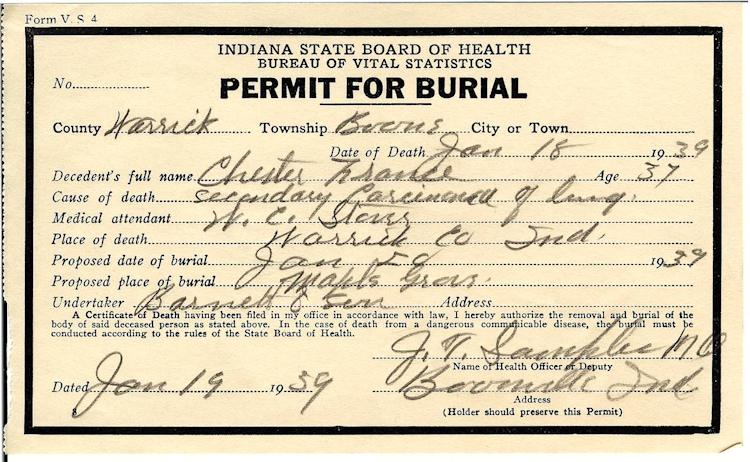 Form V. S. 4
INDIANA STATE BOARD OF HEALTH
BUREAU OF VITAL STATISTICS
No.
PERMIT FOR BURIAL
County Warrick Township Boone City or Town
Date of Death Jan 18 1939
Decedent's full name Chester France Age 37
Cause of death secondary Carcinoma of lung.
Medical attendant W. E.
Place of death Warrick Co Ind.
Proposed date of burial Jan 20 1939
Proposed place of burial Maple Grove.
Undertaker Barnett & Son Address
A Certificate of Death having been filed in my office in accordance with law, I hereby authorize the removal and burial of the
body of said deceased person as stated above. In the case of death from a dangerous communicable disease, the burial must be
conducted according to the rules of the State Board of Health.
J. T. Samples MD
Name of Health Officer or Deputy
Dated Jan 19 1939 Boonville Ind
Address
(Holder should preserve this Permit)
8